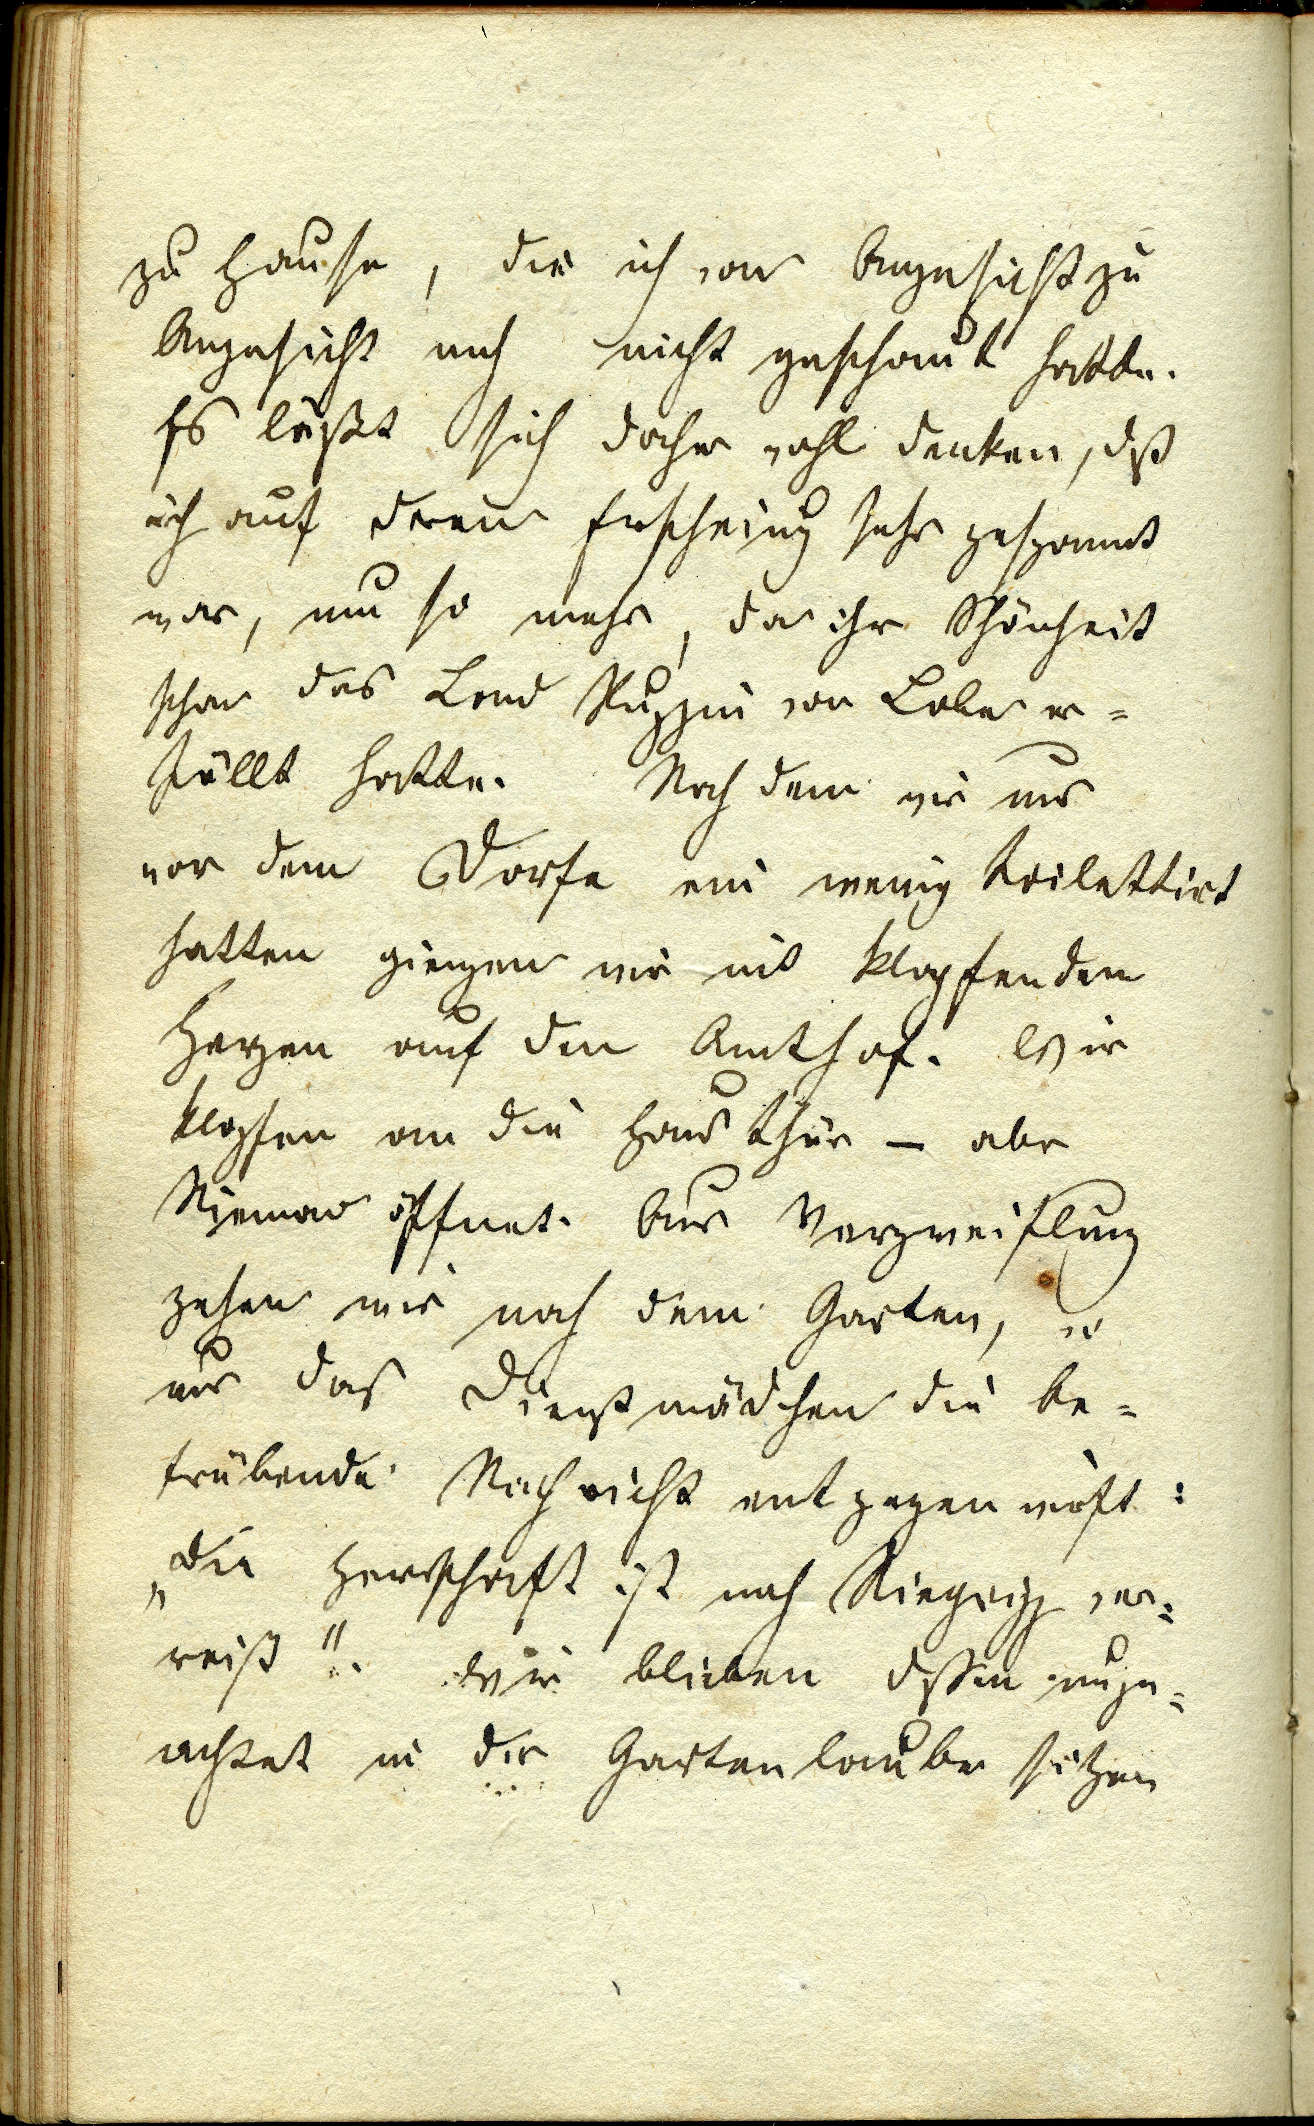 zu Hause, die ich von Angesicht zu
Angesicht noch nicht geschaut hatte.
Es läßt sich daher wohl denken, dß
ich auf deren Erscheinung sehr gespannt
war, um so mehr, da ihr Schönheit
schon das Land Ruppin von Lobe er=
füllt hatte. Nach dem wir uns
vor dem Dorfe ein wenig toilettirt
hatten giengen wir mit klopfendem
Herzen auf den Amthof. Wir
klopfen an die Hausthür – aber
Niemand öffnet. Aus Verzweiflung
gehen wir nach dem Garten, wo
uns das Dienstmädchen die be=
trübende Nachricht entgegen wirft:
„die Herrschaft ist nach ver=
reist". Wir blieben dessen unge=
achtet in der Gartenlaube sitzen